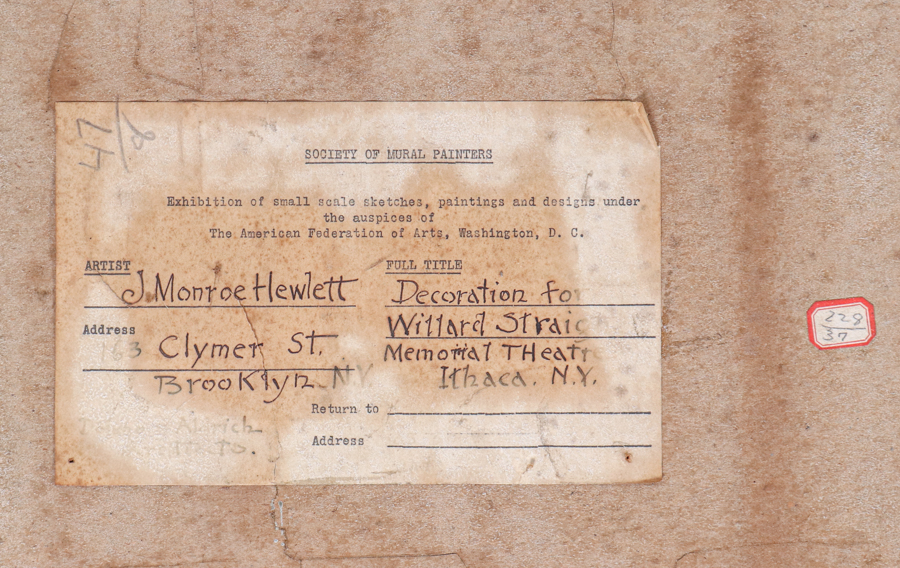 47/8
SOCIETY OF MURAL PAINTERS
Exhibition of small scale sketches, paintings and designs under
the auspices of
The American Federation of Arts, Washington, D. C.
ARTIST
J Monroe Hewlett
FULL TITLE
Decoration for
Willard Straig
Memorial THeatre
Ithaca. N.Y.
Address
163 Clymer St.
Brooklyn N.Y.
Return to
Address
228
37